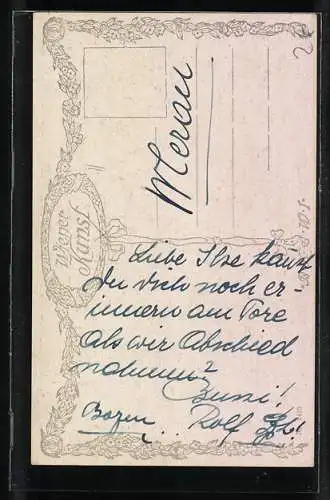 Wiener
Kunst
Meran
Liebe Ilse kannst
Du Dich noch er-
innern am Tore
als wir Abschied
nahmen?
Bussi!
Bozen Rolf